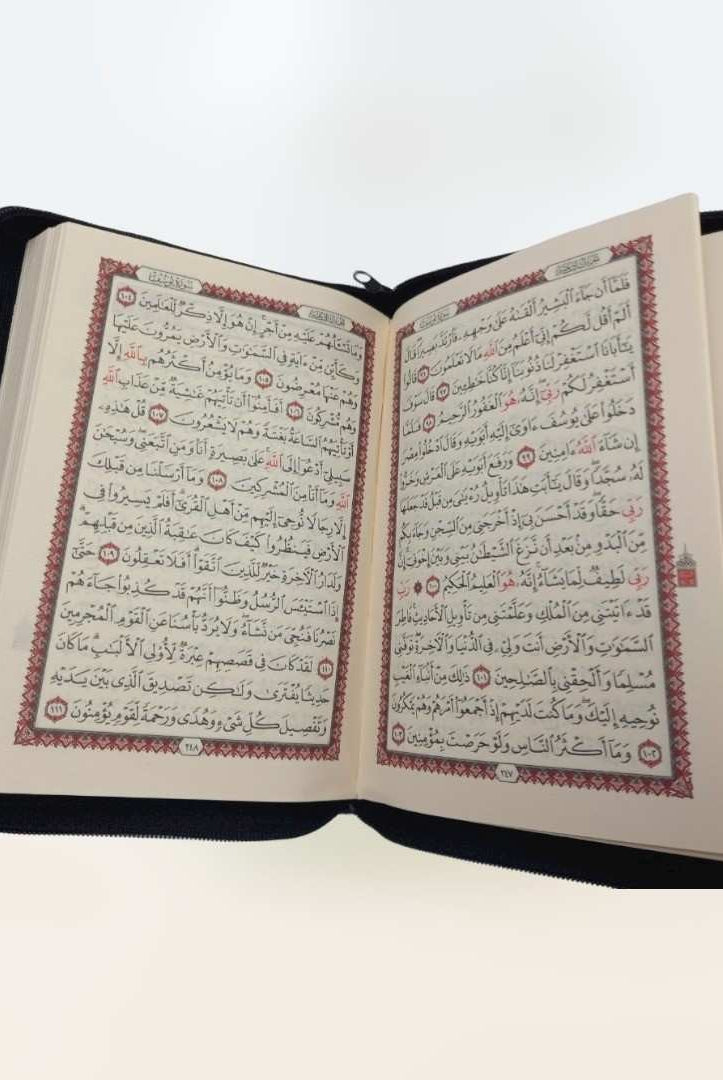 الجزء الثالث عشر
سورة يوسف
فَلَمَّآ أَن جَآءَ ٱلْبَشِيرُ أَلْقَىٰهُ عَلَىٰ وَجْهِهِۦ فَٱرْتَدَّ بَصِيرًا ۖ قَالَ
أَلَمْ أَقُل لَّكُمْ إِنِّىٓ أَعْلَمُ مِنَ ٱللَّهِ مَا لَا تَعْلَمُونَ ٩٦ قَالُوا۟
يَٰٓأَبَانَا ٱسْتَغْفِرْ لَنَا ذُنُوبَنَآ إِنَّا كُنَّا خَٰطِـِٔينَ ٩٧ قَالَ سَوْفَ
أَسْتَغْفِرُ لَكُمْ رَبِّىٓ ۖ إِنَّهُۥ هُوَ ٱلْغَفُورُ ٱلرَّحِيمُ ٩٨ فَلَمَّا
دَخَلُوا۟ عَلَىٰ يُوسُفَ ءَاوَىٰٓ إِلَيْهِ أَبَوَيْهِ وَقَالَ ٱدْخُلُوا۟ مِصْرَ
إِن شَآءَ ٱللَّهُ ءَامِنِينَ ٩٩ وَرَفَعَ أَبَوَيْهِ عَلَى ٱلْعَرْشِ وَخَرُّوا۟
لَهُۥ سُجَّدًا ۖ وَقَالَ يَٰٓأَبَتِ هَٰذَا تَأْوِيلُ رُءْيَٰىَ مِن قَبْلُ قَدْ جَعَلَهَا
رَبِّى حَقًّا ۖ وَقَدْ أَحْسَنَ بِىٓ إِذْ أَخْرَجَنِى مِنَ ٱلسِّجْنِ وَجَآءَ بِكُم
مِّنَ ٱلْبَدْوِ مِنۢ بَعْدِ أَن نَّزَغَ ٱلشَّيْطَٰنُ بَيْنِى وَبَيْنَ إِخْوَتِىٓ ۚ إِنَّ
رَبِّى لَطِيفٌ لِّمَا يَشَآءُ ۚ إِنَّهُۥ هُوَ ٱلْعَلِيمُ ٱلْحَكِيمُ ١٠٠ ۞ رَبِّ
قَدْ ءَاتَيْتَنِى مِنَ ٱلْمُلْكِ وَعَلَّمْتَنِى مِن تَأْوِيلِ ٱلْأَحَادِيثِ ۚ فَاطِرَ
ٱلسَّمَٰوَٰتِ وَٱلْأَرْضِ أَنتَ وَلِىِّۦ فِى ٱلدُّنْيَا وَٱلْآخِرَةِ ۖ تَوَفَّنِى
مُسْلِمًا وَأَلْحِقْنِى بِٱلصَّٰلِحِينَ ١٠١ ذَٰلِكَ مِنْ أَنۢبَآءِ ٱلْغَيْبِ
نُوحِيهِ إِلَيْكَ ۖ وَمَا كُنتَ لَدَيْهِمْ إِذْ أَجْمَعُوٓا۟ أَمْرَهُمْ وَهُمْ يَمْكُرُونَ
١٠٢ وَمَآ أَكْثَرُ ٱلنَّاسِ وَلَوْ حَرَصْتَ بِمُؤْمِنِينَ ١٠٣
٢٤٧
الجزء الثالث عشر
سورة يوسف
وَمَا تَسْـَٔلُهُمْ عَلَيْهِ مِنْ أَجْرٍ ۚ إِنْ هُوَ إِلَّا ذِكْرٌ لِّلْعَٰلَمِينَ ١٠٤
وَكَأَيِّن مِّنْ ءَايَةٍ فِى ٱلسَّمَٰوَٰتِ وَٱلْأَرْضِ يَمُرُّونَ عَلَيْهَا
وَهُمْ عَنْهَا مُعْرِضُونَ ١٠٥ وَمَا يُؤْمِنُ أَكْثَرُهُم بِٱللَّهِ إِلَّا
وَهُم مُّشْرِكُونَ ١٠٦ أَفَأَمِنُوٓا۟ أَن تَأْتِيَهُمْ غَٰشِيَةٌ مِّنْ عَذَابِ ٱللَّهِ
أَوْ تَأْتِيَهُمُ ٱلسَّاعَةُ بَغْتَةً وَهُمْ لَا يَشْعُرُونَ ١٠٧ قُلْ هَٰذِهِۦ
سَبِيلِىٓ أَدْعُوٓا۟ إِلَى ٱللَّهِ ۚ عَلَىٰ بَصِيرَةٍ أَنَا۠ وَمَنِ ٱتَّبَعَنِى ۖ وَسُبْحَٰنَ
ٱللَّهِ وَمَآ أَنَا۠ مِنَ ٱلْمُشْرِكِينَ ١٠٨ وَمَآ أَرْسَلْنَا مِن قَبْلِكَ
إِلَّا رِجَالًا نُّوحِىٓ إِلَيْهِم مِّنْ أَهْلِ ٱلْقُرَىٰٓ ۗ أَفَلَمْ يَسِيرُوا۟ فِى
ٱلْأَرْضِ فَيَنظُرُوا۟ كَيْفَ كَانَ عَٰقِبَةُ ٱلَّذِينَ مِن قَبْلِهِمْ ۗ
وَلَدَارُ ٱلْآخِرَةِ خَيْرٌ لِّلَّذِينَ ٱتَّقَوْا۟ ۗ أَفَلَا تَعْقِلُونَ ١٠٩ حَتَّىٰٓ
إِذَا ٱسْتَيْـَٔسَ ٱلرُّسُلُ وَظَنُّوٓا۟ أَنَّهُمْ قَدْ كُذِبُوا۟ جَآءَهُمْ
نَصْرُنَا فَنُجِّىَ مَن نَّشَآءُ ۖ وَلَا يُرَدُّ بَأْسُنَا عَنِ ٱلْقَوْمِ ٱلْمُجْرِمِينَ
١١٠ لَقَدْ كَانَ فِى قَصَصِهِمْ عِبْرَةٌ لِّأُو۟لِى ٱلْأَلْبَٰبِ ۗ مَا كَانَ
حَدِيثًا يُفْتَرَىٰ وَلَٰكِن تَصْدِيقَ ٱلَّذِى بَيْنَ يَدَيْهِ
وَتَفْصِيلَ كُلِّ شَىْءٍ وَهُدًى وَرَحْمَةً لِّقَوْمٍ يُؤْمِنُونَ ١١١
٢٤٨